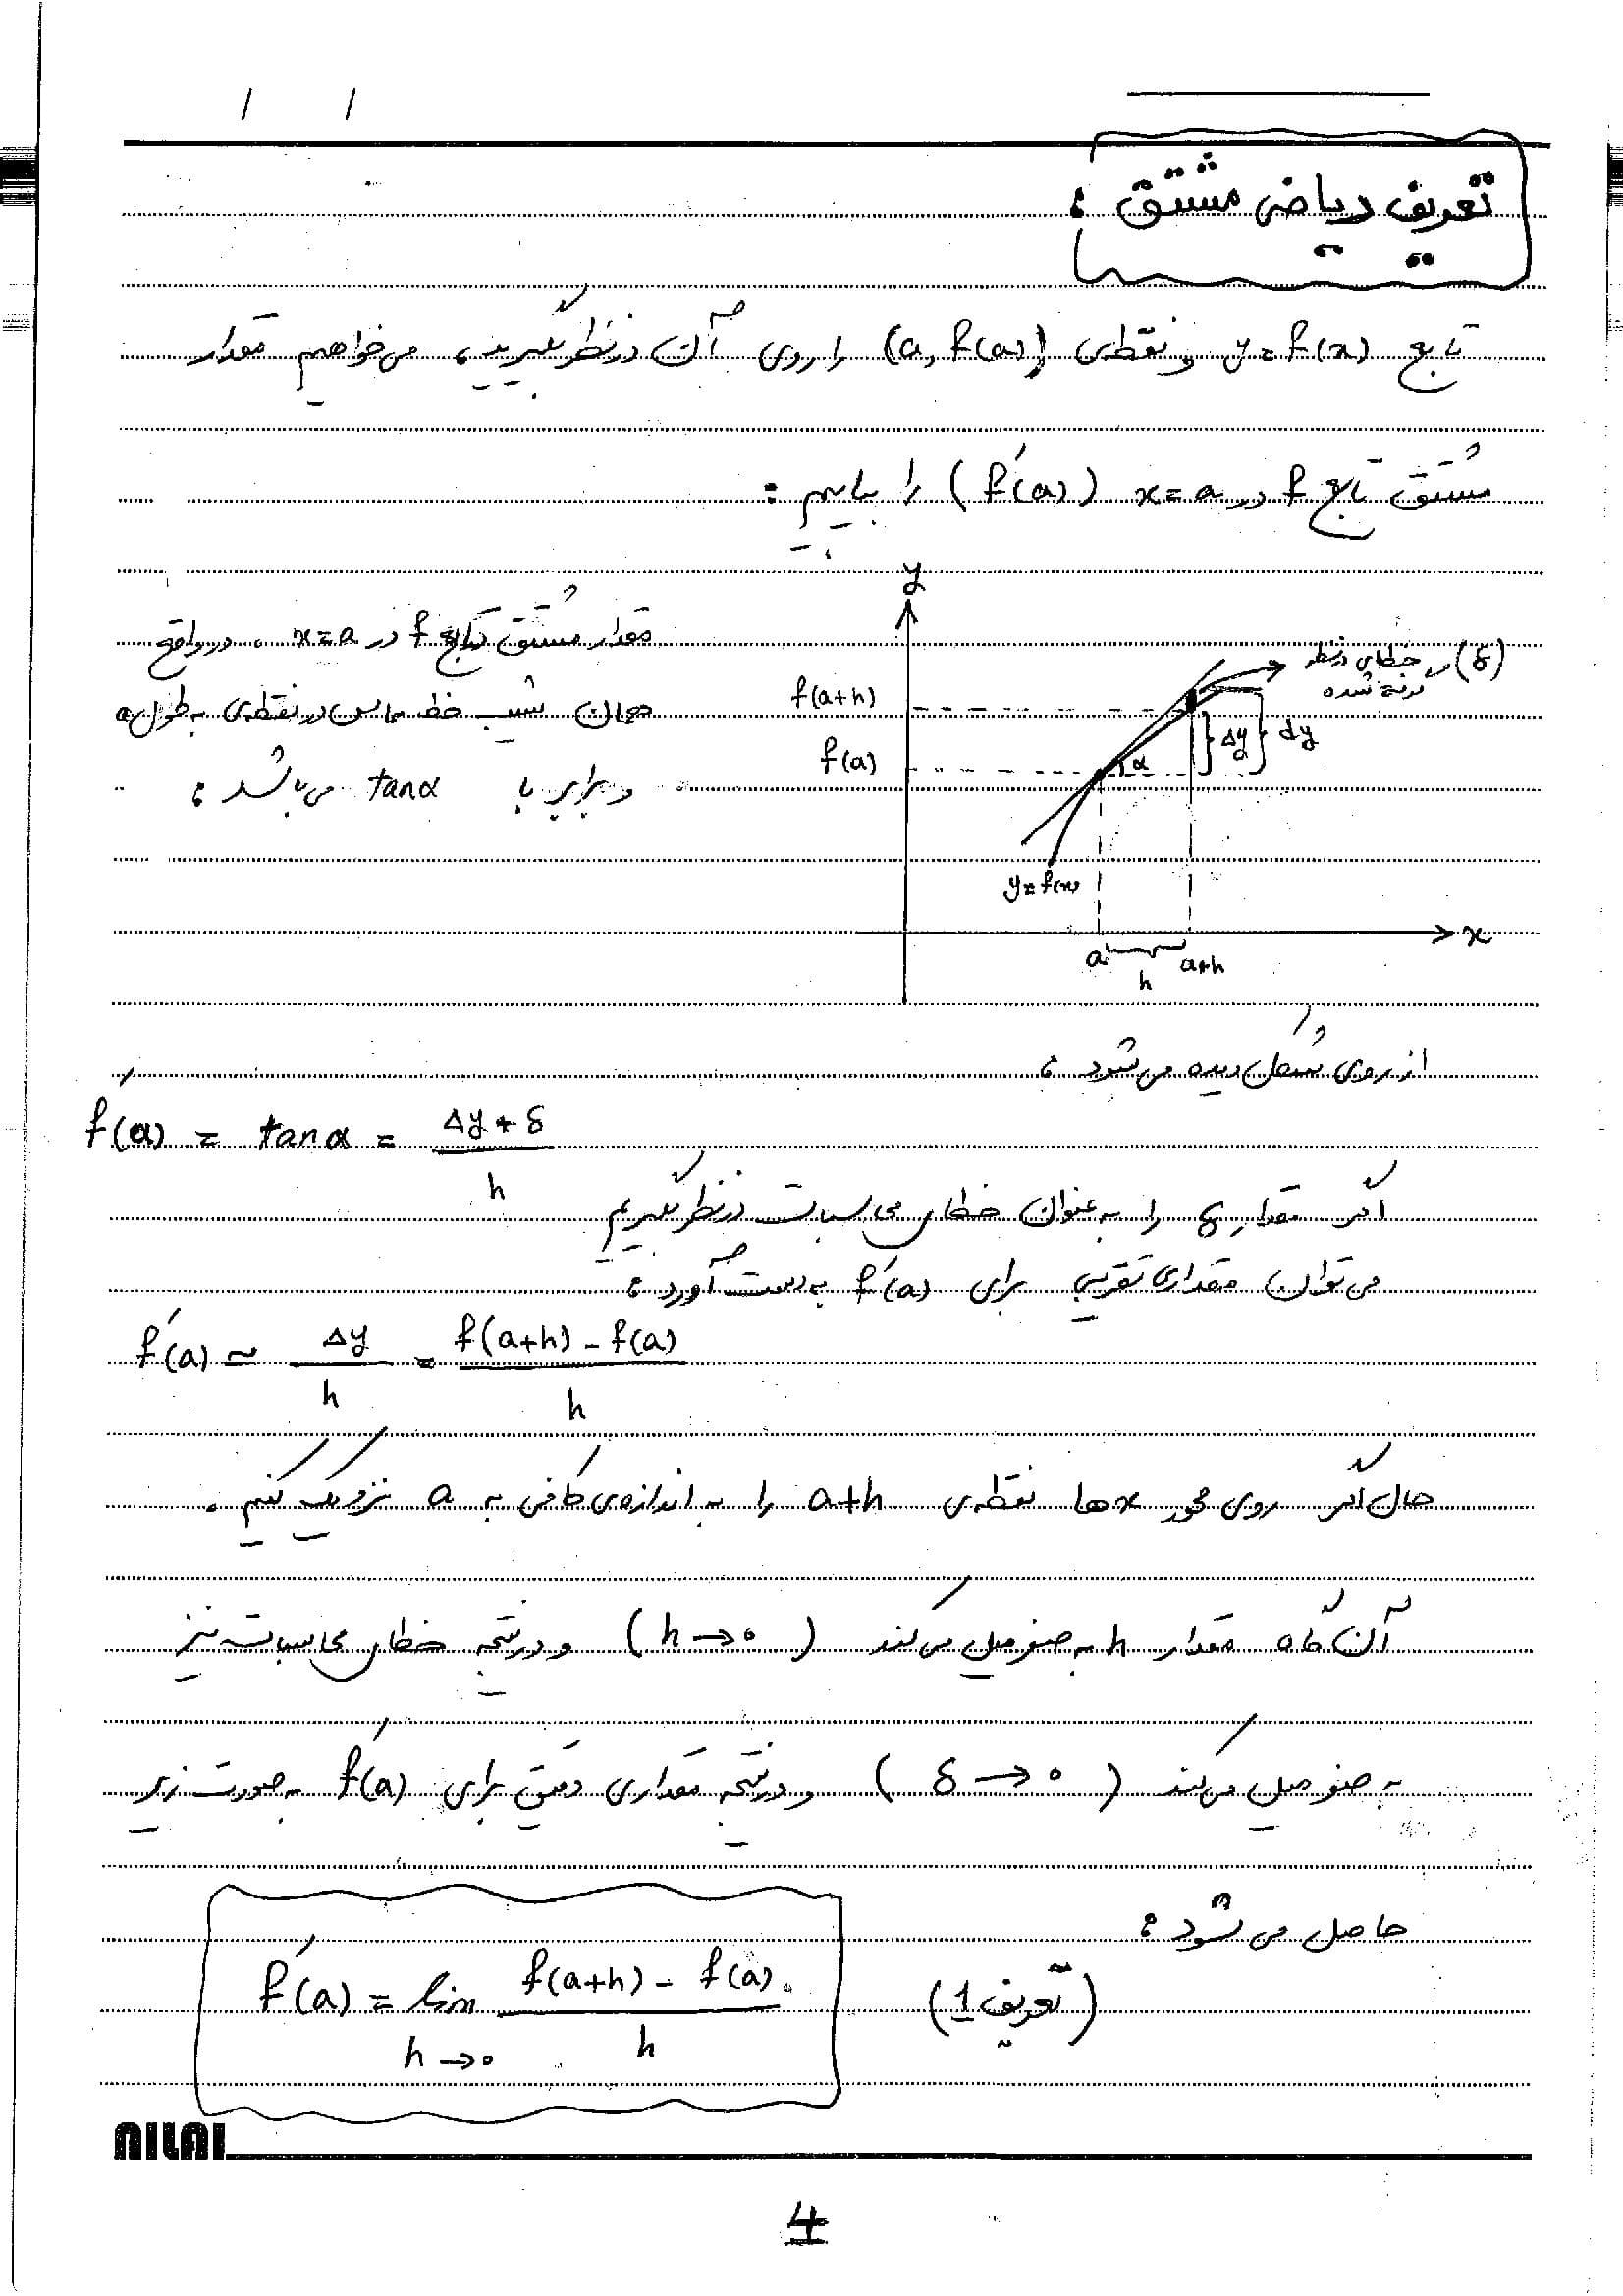 / /
تعریف ریاضی مشتق :
تابع y=f(x) و نقطه‌ی (a, f(a)) را روی آن درنظر بگیرید، می‌خواهیم مقدار
مشتق تابع f در x=a (f′(a)) را بیابیم :
مقدار مشتق تابع f در x=a ، در واقع
همان شیب خط مماس در نقطه‌ی به طول a
و برابر با tanα می‌باشد :
y
f(a+h)
f(a)
خطای درنظر (δ)
گرفته شده
Δy
dy
α
y=f(x)
x
a
a+h
h
از روی شکل دیده می‌شود :
f′(a) = tanα = (Δy+δ)/h
اگر مقدار δ را به عنوان خطای محاسبات درنظر بگیریم
می‌توان مقداری تقریبی برای f′(a) به‌دست آورد :
f′(a) ≃ Δy/h = (f(a+h) - f(a))/h
حال اگر روی محور xها نقطه‌ی a+h را به اندازه‌ی کافی به a نزدیک کنیم ،
آن‌گاه مقدار h به صفر میل می‌کند (h→0) و درنتیجه خطای محاسبات نیز
به صفر میل می‌کند (δ→0) و درنتیجه مقداری دقیق برای f′(a) به صورت زیر
حاصل می‌شود :
(تعریف 1)
f′(a) = lim h→0 (f(a+h) - f(a))/h
NILAI
4